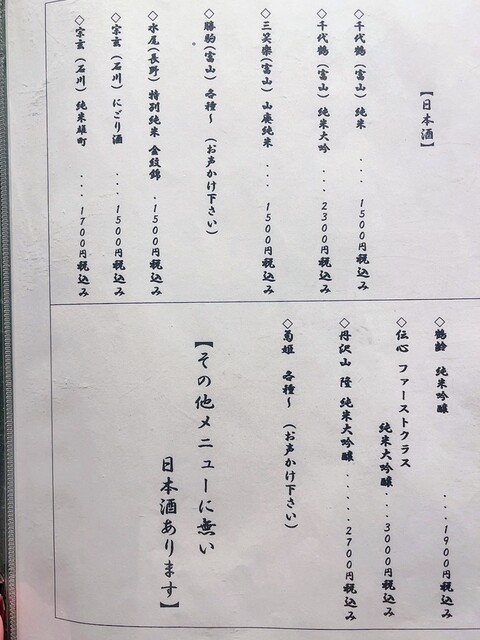 【日本酒】
◇千代鶴(富山)純米 ...1500円税込み
◇千代鶴(富山)純米大吟 ...2300円税込み
◇三笑楽(富山)山廃純米 ...1500円税込み
◇勝駒(富山)各種〜(お声かけ下さい)
◇水尾(長野)特別純米 金紋錦 .1500円税込み
◇宗玄(石川)にごり酒 ...1500円税込み
◇宗玄(石川)純米雄町 ...1700円税込み
◇鶴齢 純米吟醸 ....1900円税込み
◇伝心 ファーストクラス
純米大吟醸...3000円税込み
◇丹沢山 隆 純米大吟醸....2700円税込み
◇菊姫 各種〜(お声かけ下さい)
【その他メニューに無い
日本酒あります】